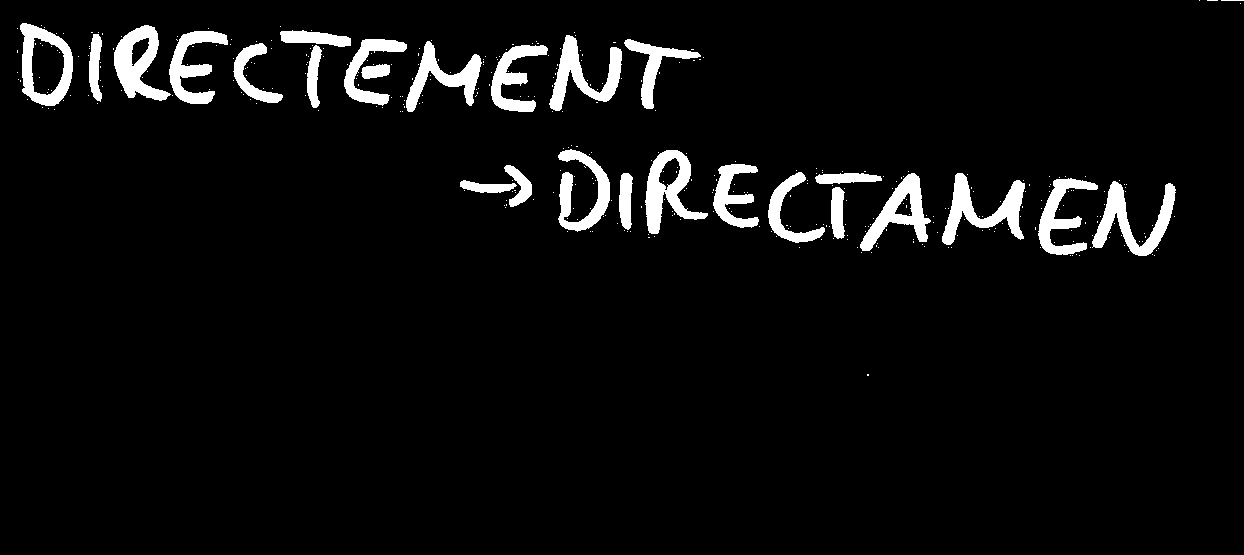 DIRECTEMENT
→ DIRECTAMEN